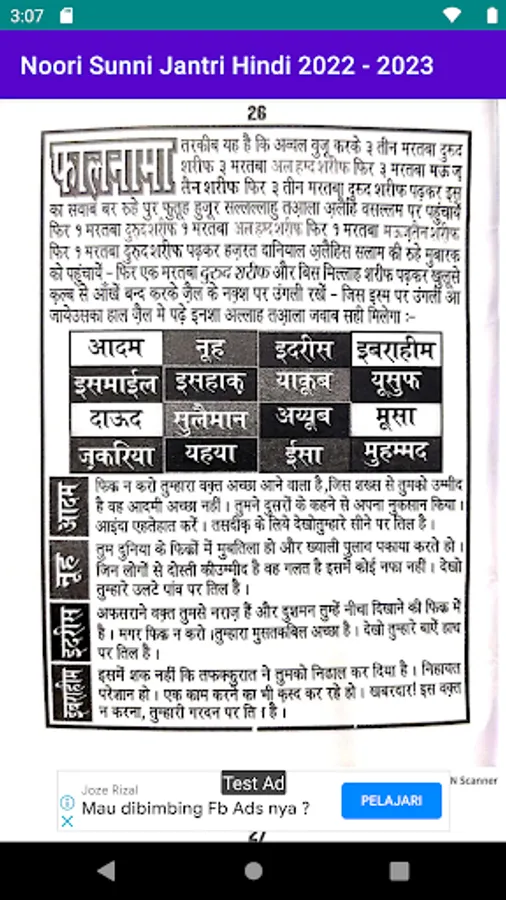 3:07
Noori Sunni Jantri Hindi 2022 - 2023
26
फालनामा
तरकीब यह है कि अव्वल वुजू करके ३ तीन मरतबा दुरुद
शरीफ ३ मरतबा अलहम्द शरीफ फिर ३ मरतबा मऊज़
तैन शरीफ फिर ३ तीन मरतबा दुरुद शरीफ पढ़कर इस
का सवाब बर रुहे पुर फुतूह हुजूर सल्लल्लाहु तआला अलैहि वसल्लम पर पहुंचायें
फिर १ मरतबा दुरुद शरीफ १ मरतबा अलहम्द शरीफ फिर १ मरतबा मऊजतैन शरीफ
फिर १ मरतबा दुरुद शरीफ पढ़कर हज़रत दानियाल अलैहिस सलाम की रुहे मुबारक
को पहुंचायें - फिर एक मरतबा दुरुद शरीफ और बिस मिल्लाह शरीफ पढ़कर खुलूसे
कल्ब से आँखें बन्द करके ज़ैल के नक़्श पर उंगली रखें - जिस इस्म पर उंगली आ
जाये उसका हाल ज़ैल में पढ़े इनशा अल्लाह तआला जवाब सही मिलेगा :-
आदम नूह इदरीस इबराहीम
इसमाईल इसहाक़ याकूब यूसुफ
दाऊद सुलैमान अय्यूब मूसा
ज़करिया यहया ईसा मुहम्मद
आदम
फिक्र न करो तुम्हारा वक़्त अच्छा आने वाला है, जिस शख्स से तुमको उम्मीद
है वह आदमी अच्छा नहीं । तुमने दुसरों के कहने से अपना नुकसान किया ।
आइंदा एहतेहात करें । तसदीक़ के लिये देखो तुम्हारे सीने पर तिल है ।
नूह
तुम दुनिया के फिक्रों में मुबतिला हो और ख्याली पुलाव पकाया करते हो ।
जिन लोगों से दोस्ती की उम्मीद है वह गलत है इसमें कोई नफा नहीं । देखो
तुम्हारे उलटे पांव पर तिल है ।
इदरीस
अफसराने वक़्त तुमसे नराज़ हैं और दुशमन तुम्हें नीचा दिखाने की फिक्र में
है । मगर फिक्र न करो । तुम्हारा मुसतकबिल अच्छा है । देखो तुम्हारे बाऐं हाथ
पर तिल है ।
इबराहीम
इसमें शक नहीं कि तफक्कुरात ने तुमको निढाल कर दिया है । निहायत
परेशान हो । एक काम करने का भी क़स्द कर रहे हो । खबरदार! इस वक़्त
न करना, तुम्हारी गरदन पर ति । है ।
N Scanner
Test Ad
Joze Rizal
Mau dibimbing Fb Ads nya ?
PELAJARI